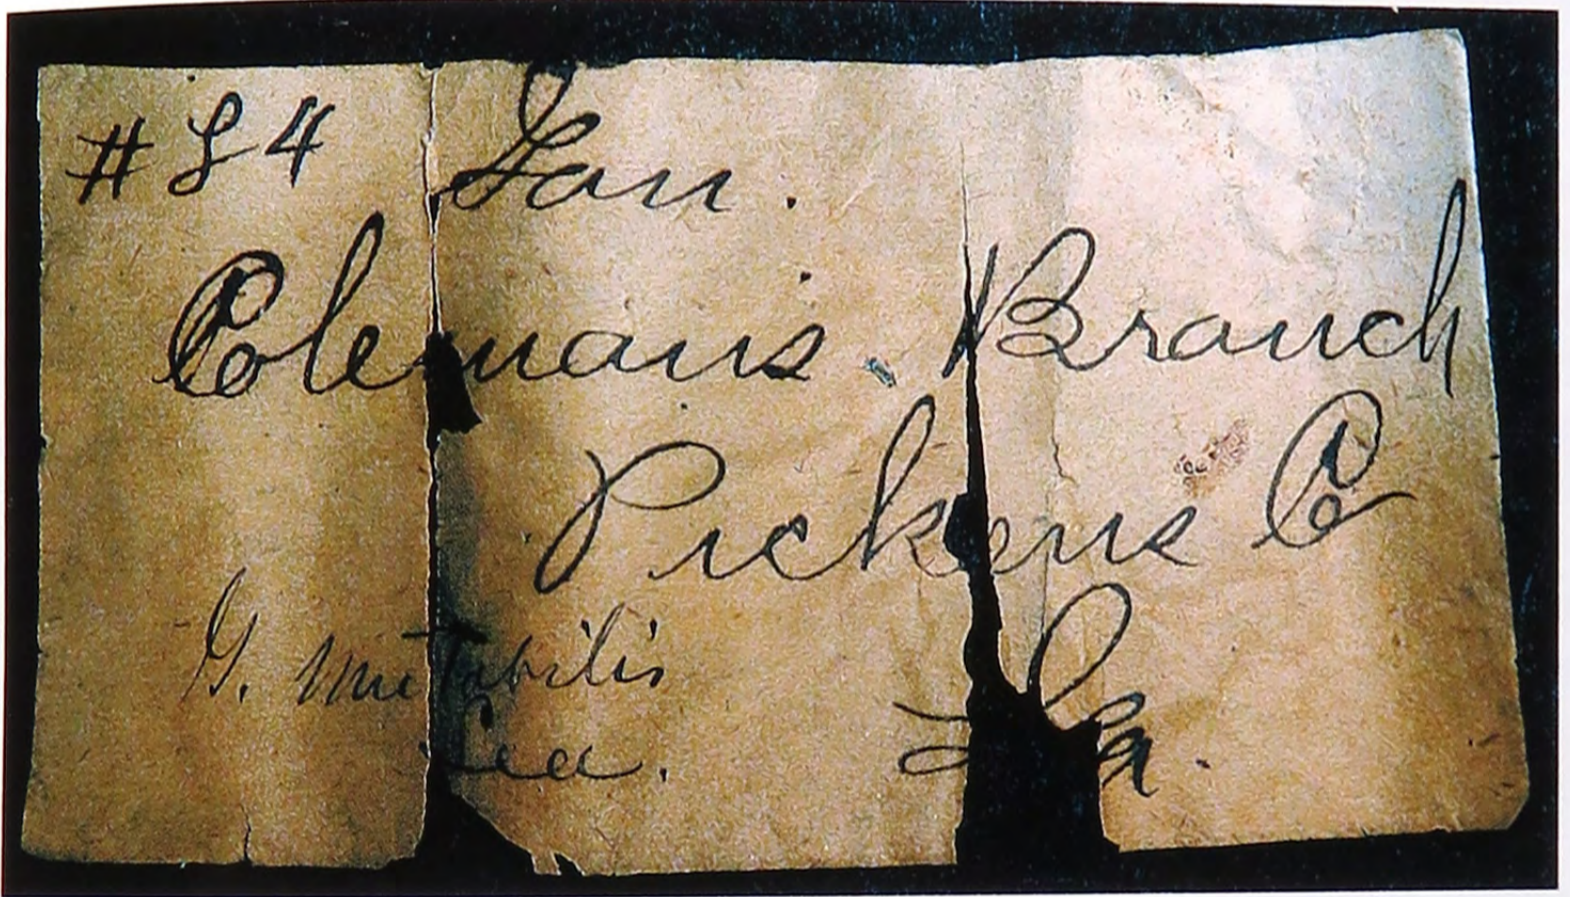 #84 Gon.
Colemans. Branch
Pickens Co
G. mutabilis
Lea. Ga.